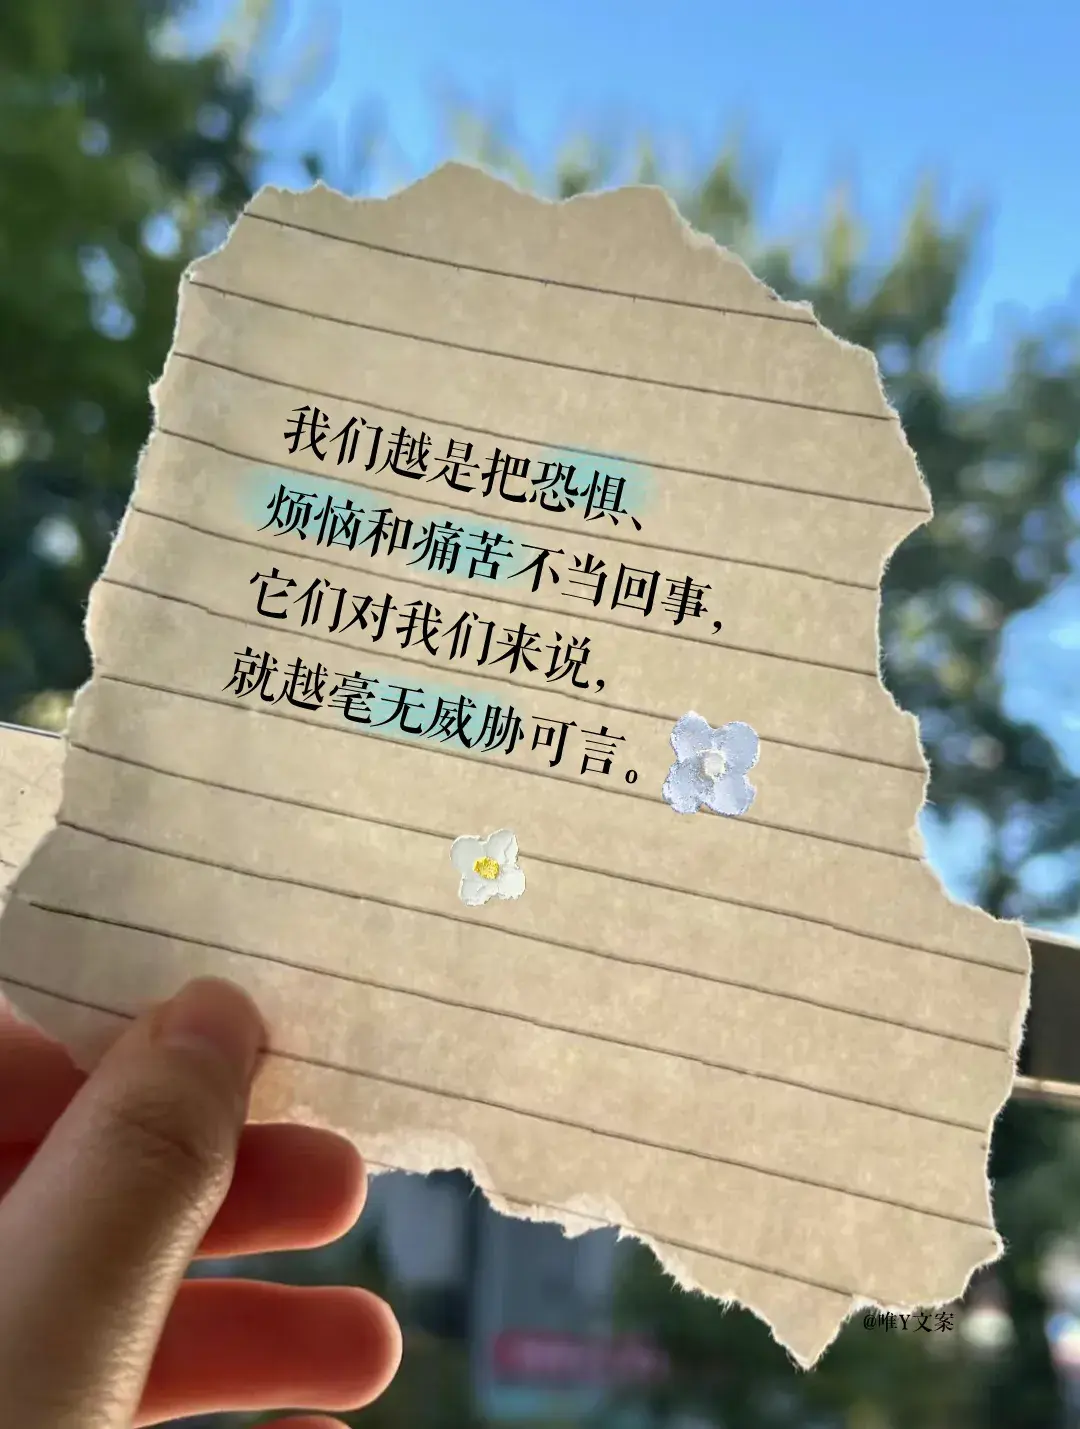 我们越是把恐惧、
烦恼和痛苦不当回事，
它们对我们来说，
就越毫无威胁可言。
@唯Y文案